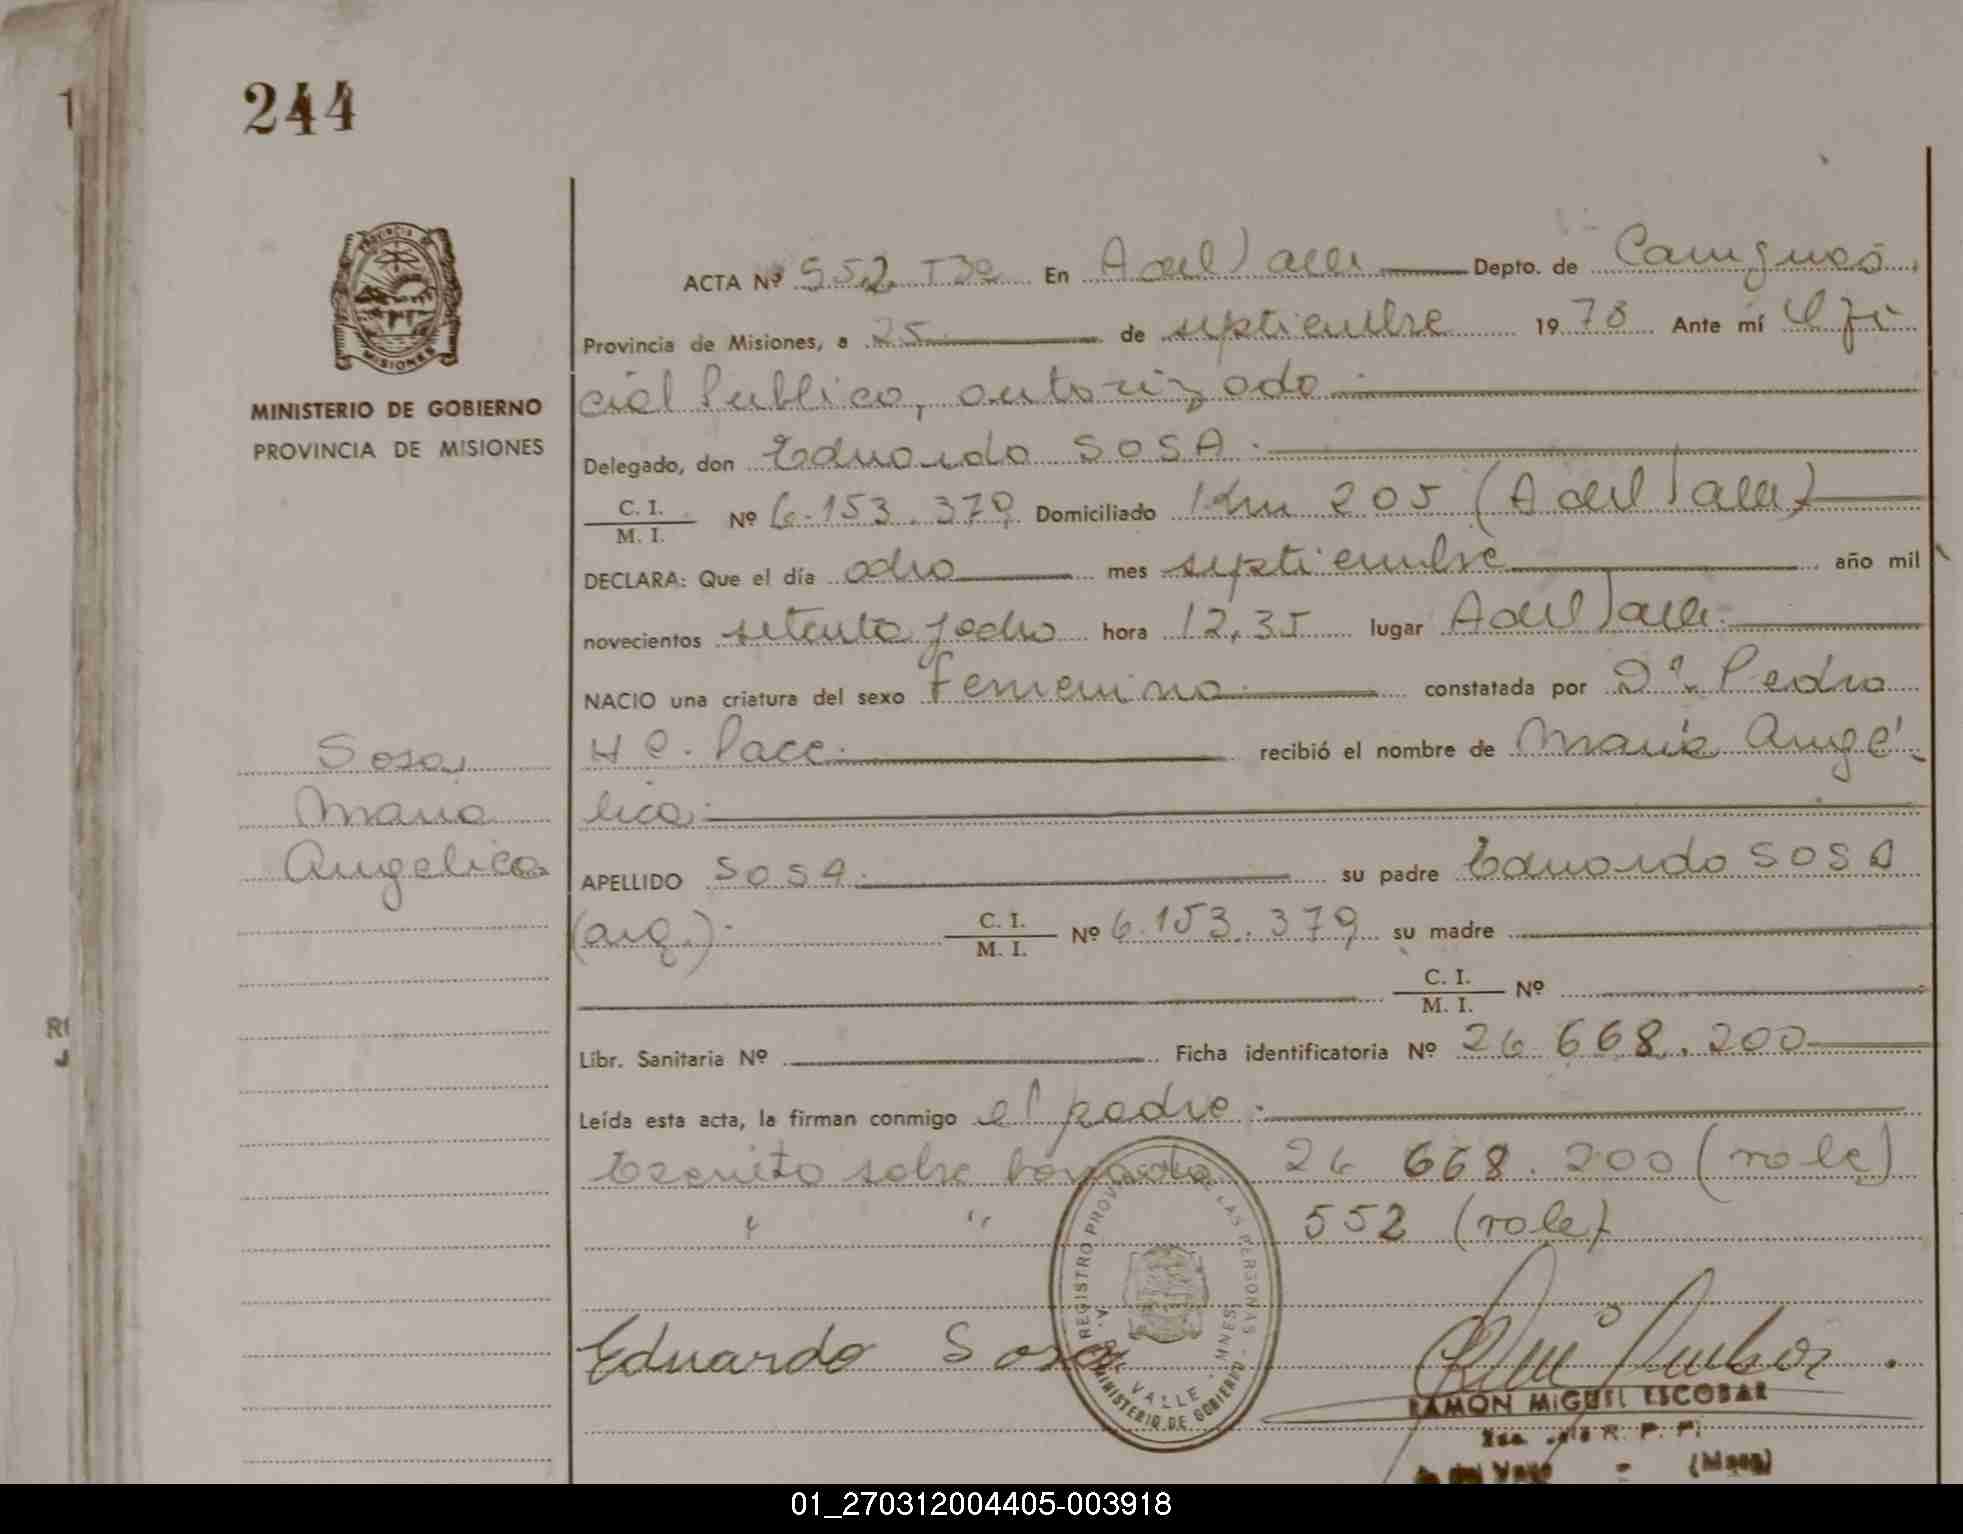 244
PROVINCIA DE
MISIONES
MINISTERIO DE GOBIERNO
PROVINCIA DE MISIONES
ACTA Nº 552 T3º En A del Valle Depto. de Cainguás
Provincia de Misiones, a 25 de septiembre 1978 Ante mí Ofi
cial Publico, autorizado
Delegado, don Eduardo SOSA.
C. I.
M. I. Nº 6.153.379 Domiciliado Km 205 (A del Valle)
DECLARA: Que el día ocho mes septiembre año mil
novecientos setenta y ocho hora 12,35 lugar A del Valle.
NACIO una criatura del sexo femenino constatada por Dr. Pedro
H C. Pace. recibió el nombre de María Angé-
lica.
Sosa,
Maria
Angelica
APELLIDO SOSA. su padre Eduardo SOSA
(arg.). C. I.
M. I. Nº 6.153.379 su madre
C. I.
M. I. Nº
Libr. Sanitaria Nº Ficha identificatoria Nº 26 668.200
Leída esta acta, la firman conmigo el padre.
Escrito sobre borrado 26 668.200 (vale)
" " 552 (vale)
REGISTRO PROV DE LAS PERSONAS
A. DEL VALLE - MNES
MINISTERIO DE GOBIERNO
Eduardo Sosa
RAMON MIGUEL ESCOBAR
R. P. P.
A. del Valle - (Mnes)
01_270312004405-003918